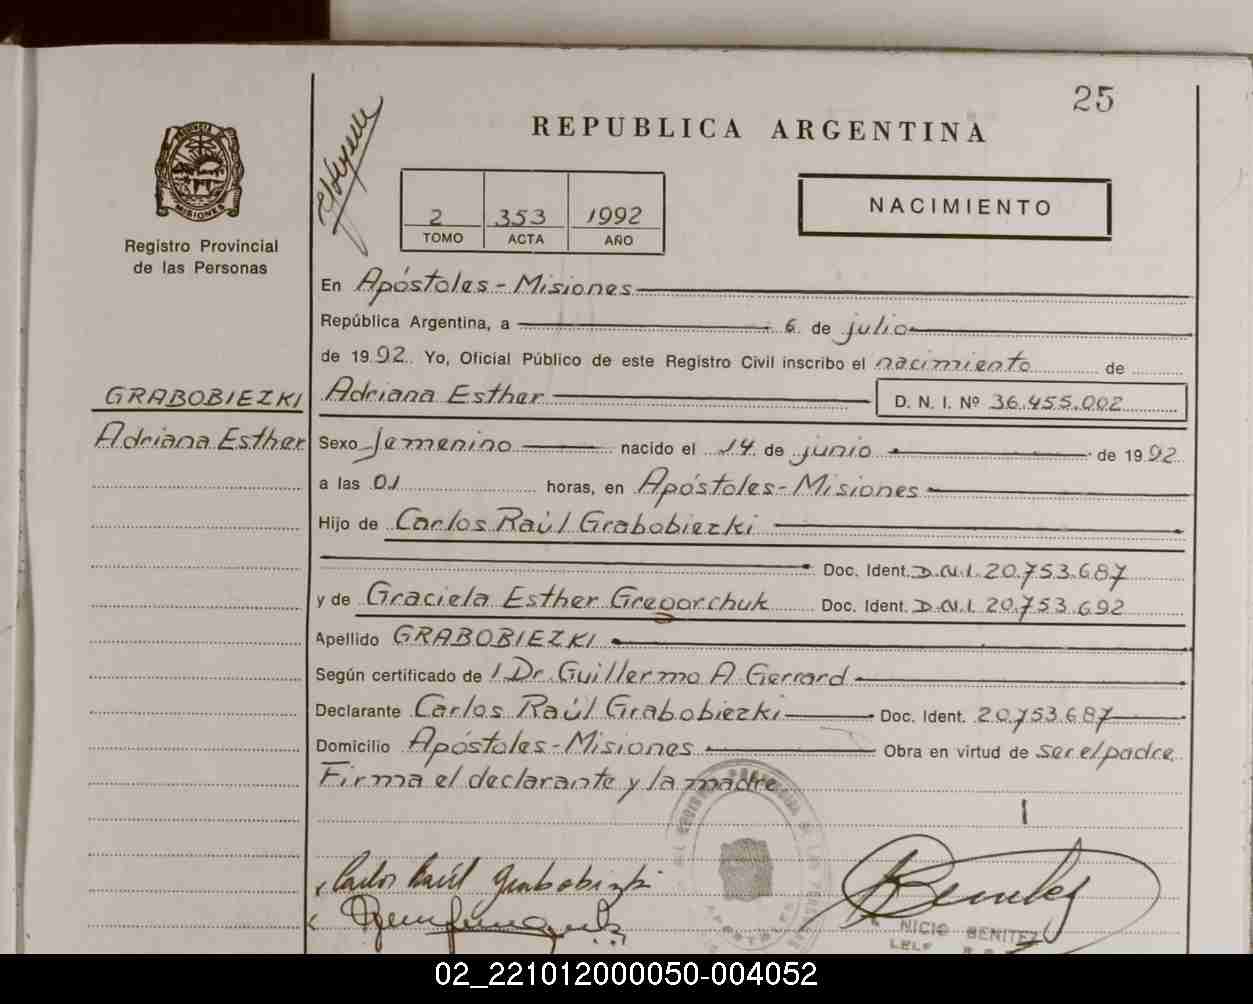 25
REPUBLICA ARGENTINA
PROVINCIA DE MISIONES
Registro Provincial
de las Personas
2 353 1992
TOMO ACTA AÑO
NACIMIENTO
En Apóstoles - Misiones
República Argentina, a 6 de julio
de 1992 Yo, Oficial Público de este Registro Civil inscribo el nacimiento de
GRABOBIEZKI
Adriana Esther
Adriana Esther D. N. I. Nº 36.455.002
Sexo femenino nacido el 14 de junio de 1992
a las 01 horas, en Apóstoles - Misiones
Hijo de Carlos Raúl Grabobiezki
Doc. Ident. D.N.I. 20.753.687
y de Graciela Esther Gregorchuk Doc. Ident. D.N.I. 20.753.692
Apellido GRABOBIEZKI
Según certificado de / Dr. Guillermo A. Gerrard
Declarante Carlos Raúl Grabobiezki Doc. Ident. 20.753.687
Domicilio Apóstoles - Misiones Obra en virtud de ser el padre.
Firma el declarante y la madre
Carlos Raúl Grabobiezki
NICIO BENITEZ
02_221012000050-004052